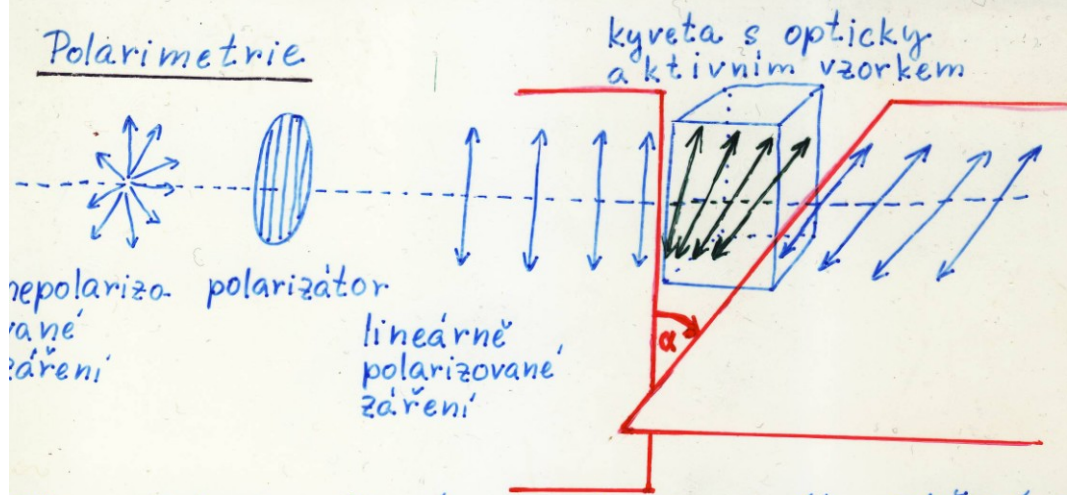 Polarimetrie
kyveta s opticky
aktivním vzorkem
nepolarizo-
polarizátor
lineárně
polarizované
záření
α